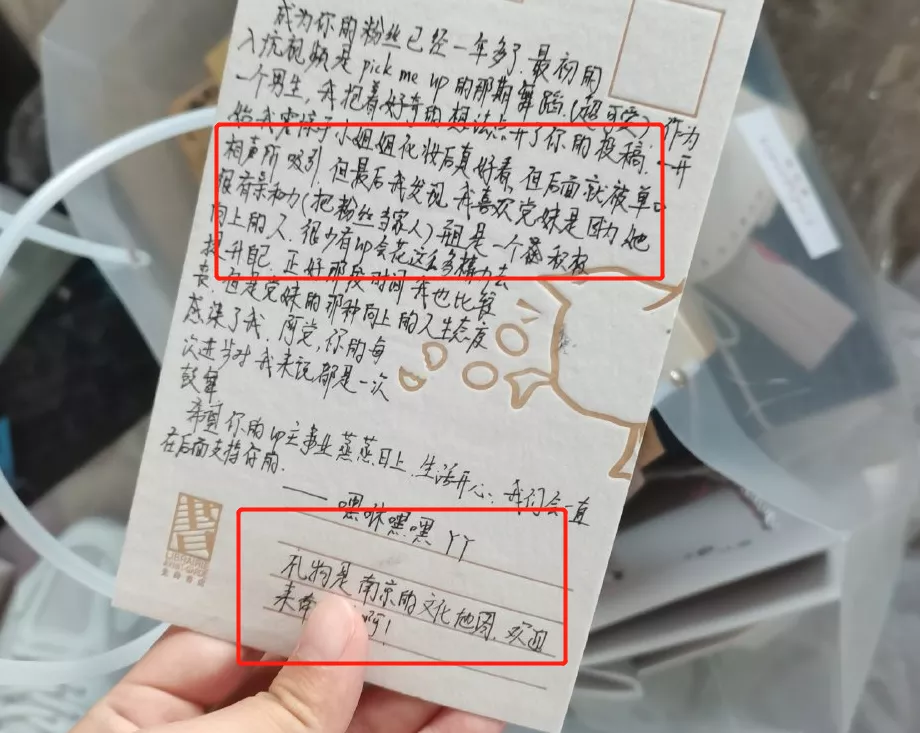 成为你的粉丝已经一年多了,最初的
入坑视频是pick me up的那期舞蹈(超可爱)作为
一个男生,我抱着好奇的想法点开了你的投稿,一开
始我震惊于小姐姐化妆后真好看,但后面就被单口
相声所吸引,但最后我发现,我喜欢完妹是因为她
很有亲和力(把粉丝当家人)而且是一个积极
向上的人,很少有up会花这么多精力去
提升自己,正好那段时间我也比较
丧,但是完妹的那种向上的人生态度
感染了我,所完,你的每
次进步对我来说都是一次
鼓舞
希望你的up主事业蒸蒸日上,生活开心,我们会一直
在后面支持你的.
——嘿咻嘿嘿YY
礼物是南京的文化地图,欢迎
来南啊!